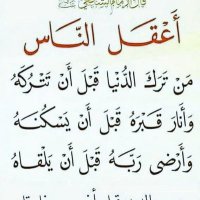 قال الإمام الشافعي
أَعْقَلُ النَّاسِ
مَنْ تَرَكَ الدُّنْيَا قَبْلَ أَنْ تَتْرُكَهُ
وَأَنَارَ قَبْرَهُ قَبْلَ أَنْ يَسْكُنَهُ
وَأَرْضَى رَبَّهُ قَبْلَ أَنْ يَلْقَاهُ